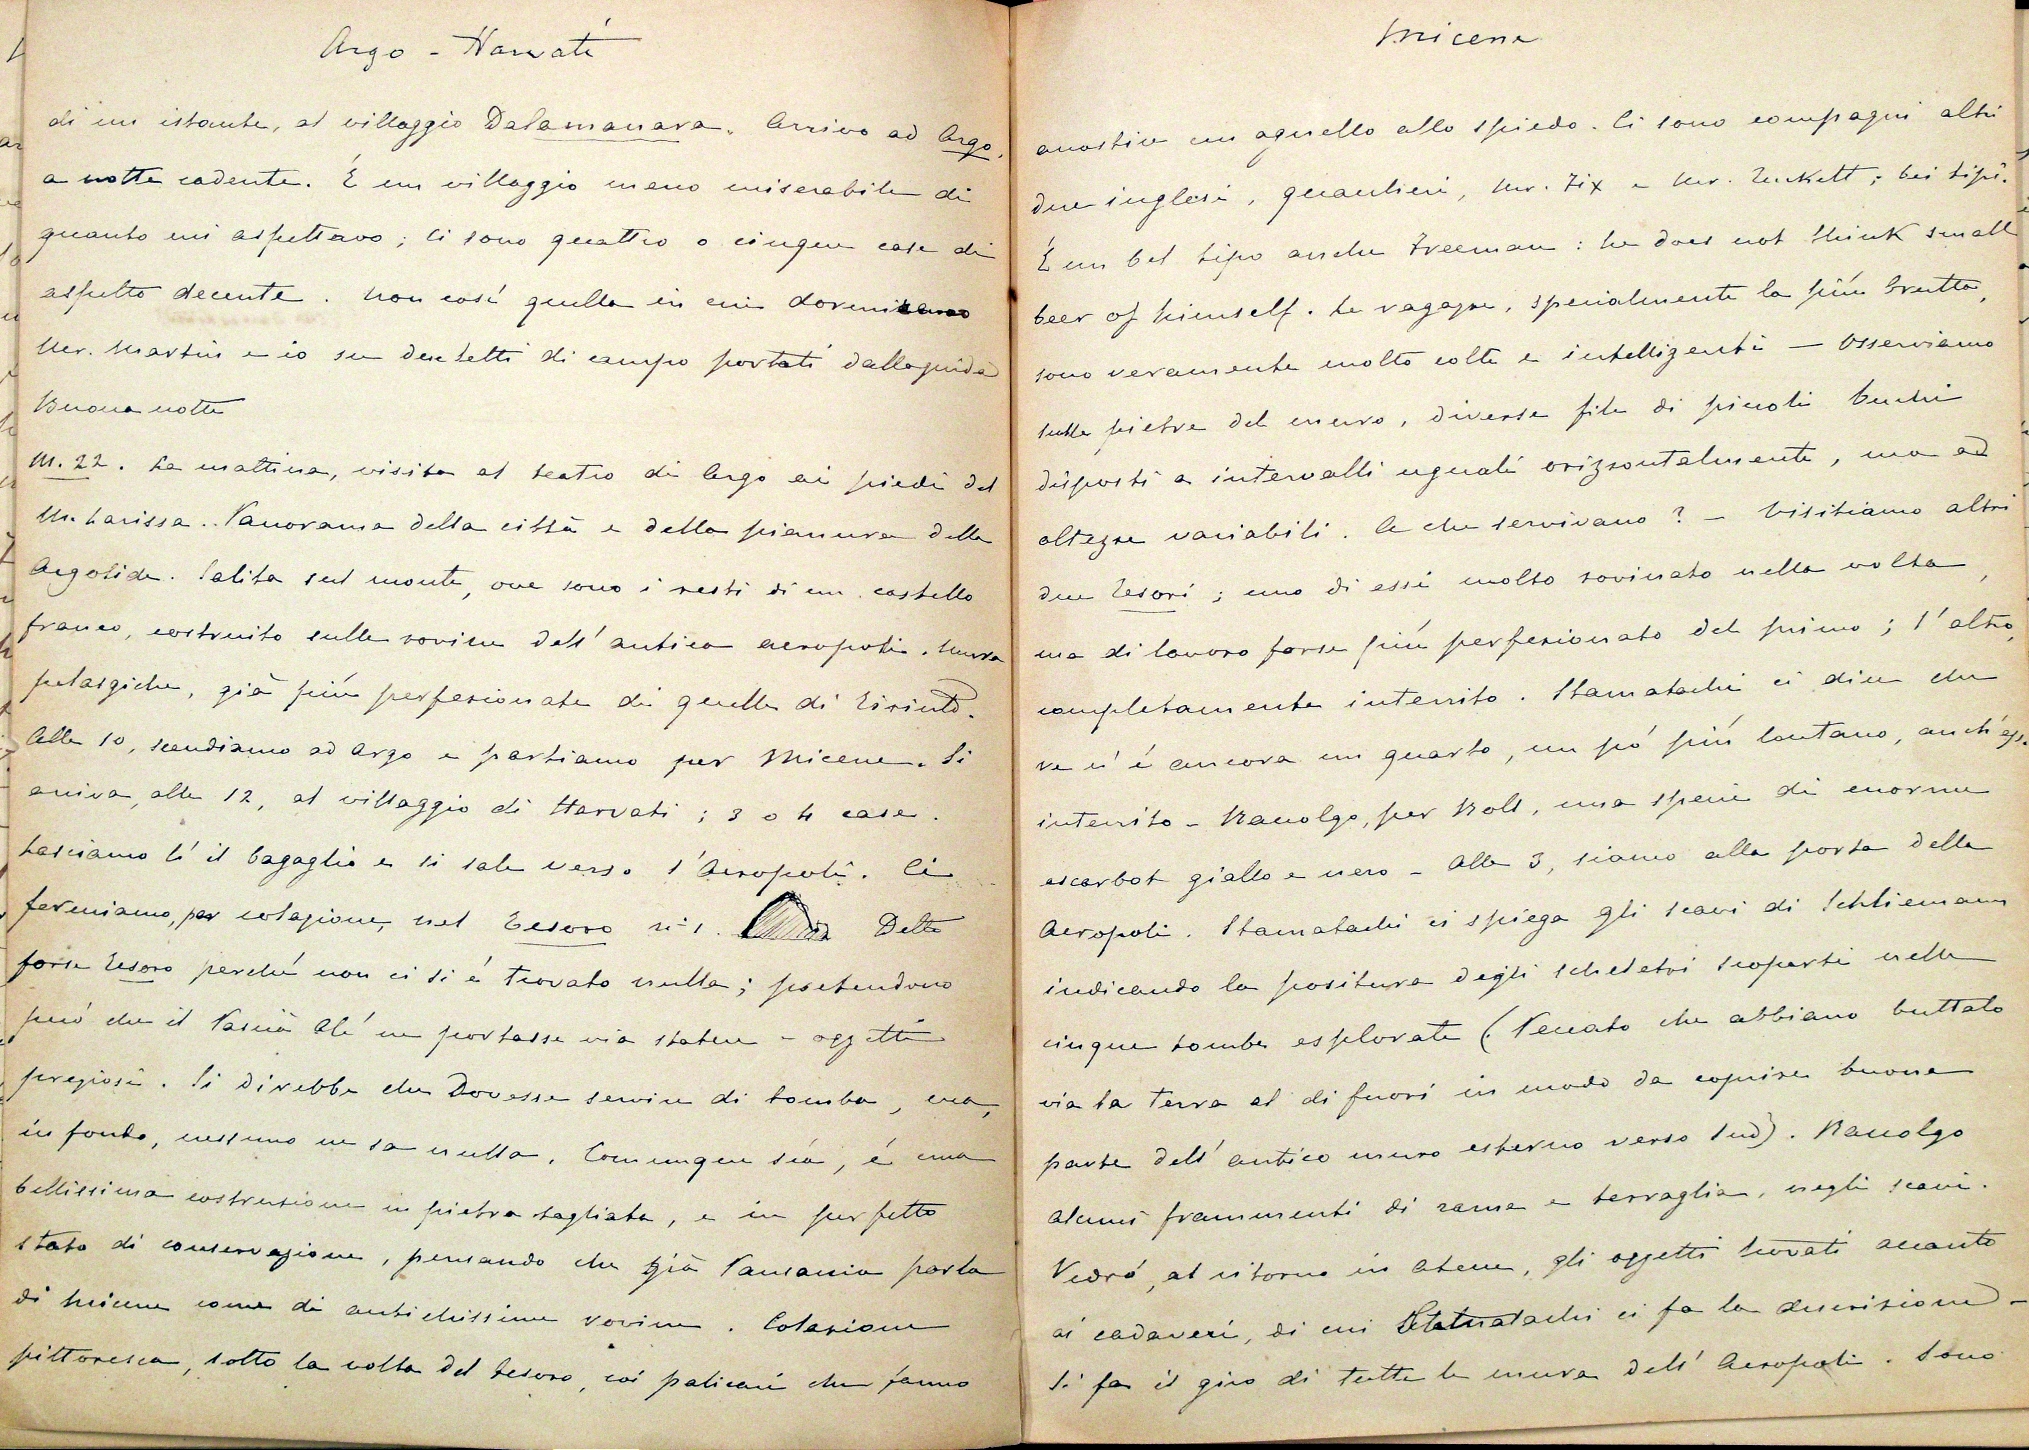 Argo - Harvati
di un istante, al villaggio Dalamanara. Arrivo ad Argo,
a notte cadente. È un villaggio meno miserabile di
quanto mi aspettavo; ci sono quattro o cinque case di
aspetto decente. Non così quella in cui dormiremo
Mr. Martin e io su due letti di campo portati dalla guida
Buona notte
M. 22. La mattina, visita al teatro di Argo ai piedi del
M. Larissa. Panorama della città e della pianura della
Argolide. Salita sul monte, ove sono i resti di un castello
franco, costruito sulle rovine dell'antica acropoli. Mura
pelasgiche, già più perfezionate di quelle di Tirinto.
Alle 10, scendiamo ad Argo e partiamo per Micene. Si
arriva, alle 12, al villaggio di Harvati; 3 o 4 case.
Lasciamo lí il bagaglio e si sale verso l'Acropoli. Ci
fermiamo, per colazione, nel Tesoro n. 1. Detto
forse Tesoro perchè non ci si é trovato nulla; pretendono
peró che il Pascià Alí ne portasse via statue e oggetti
preziosi. Si direbbe che Dovesse servire di tomba, ma,
in fondo, nessuno ne sa nulla. Comunque sia, é una
bellissima costruzione in pietra tagliata, e in perfetto
stato di conservazione, pensando che già Pausania parla
di Micene come di antichissime rovine. Colazione
pittoresca, sotto la volta del tesoro, coi palicari che fanno
Micene
arrostire un agnello allo spiedo. Ci sono compagni altri
due inglesi, quantieri, Mr. Fix e Mr. Tuckett; bei tipi.
È un bel tipo anche Freeman: he does not think small
beer of himself. Le ragazze, specialmente la più brutta,
sono veramente molto colte e intelligenti — Osserviamo
sulle pietre del muro, diverse file di piccoli buchi
disposti a intervalli uguali orizzontalmente, ma ad
altezze variabili. A che servivano? - Visitiamo altri
due Tesori; uno di essi molto rovinato nella volta,
ma di lavoro forse più perfezionato del primo; l'altro,
completamente interrito. Stamatachi ci dice che
ve n'é ancora un quarto, un pó più lontano, anch'esso
interrito - Raccolgo, per Bolt, una specie di enorme
escarbot giallo e nero - Alle 3, siamo alla porta della
Acropoli. Stamatachi ci spiega gli scavi di Schliemann
indicando la positura degli scheletri scoperti nelle
cinque tombe esplorate (Peccato che abbiano buttato
via la terra al di fuori in modo da coprire buona
parte dell'antico muro esterno verso Sud). Raccolgo
alcuni frammenti di rame e terraglia, negli scavi.
Vedró, al ritorno in Atene, gli oggetti trovati accanto
ai cadaveri, di cui Stamatachi ci fa la descrizione -
Si fa il giro di tutte le mura dell'Acropoli. Sono